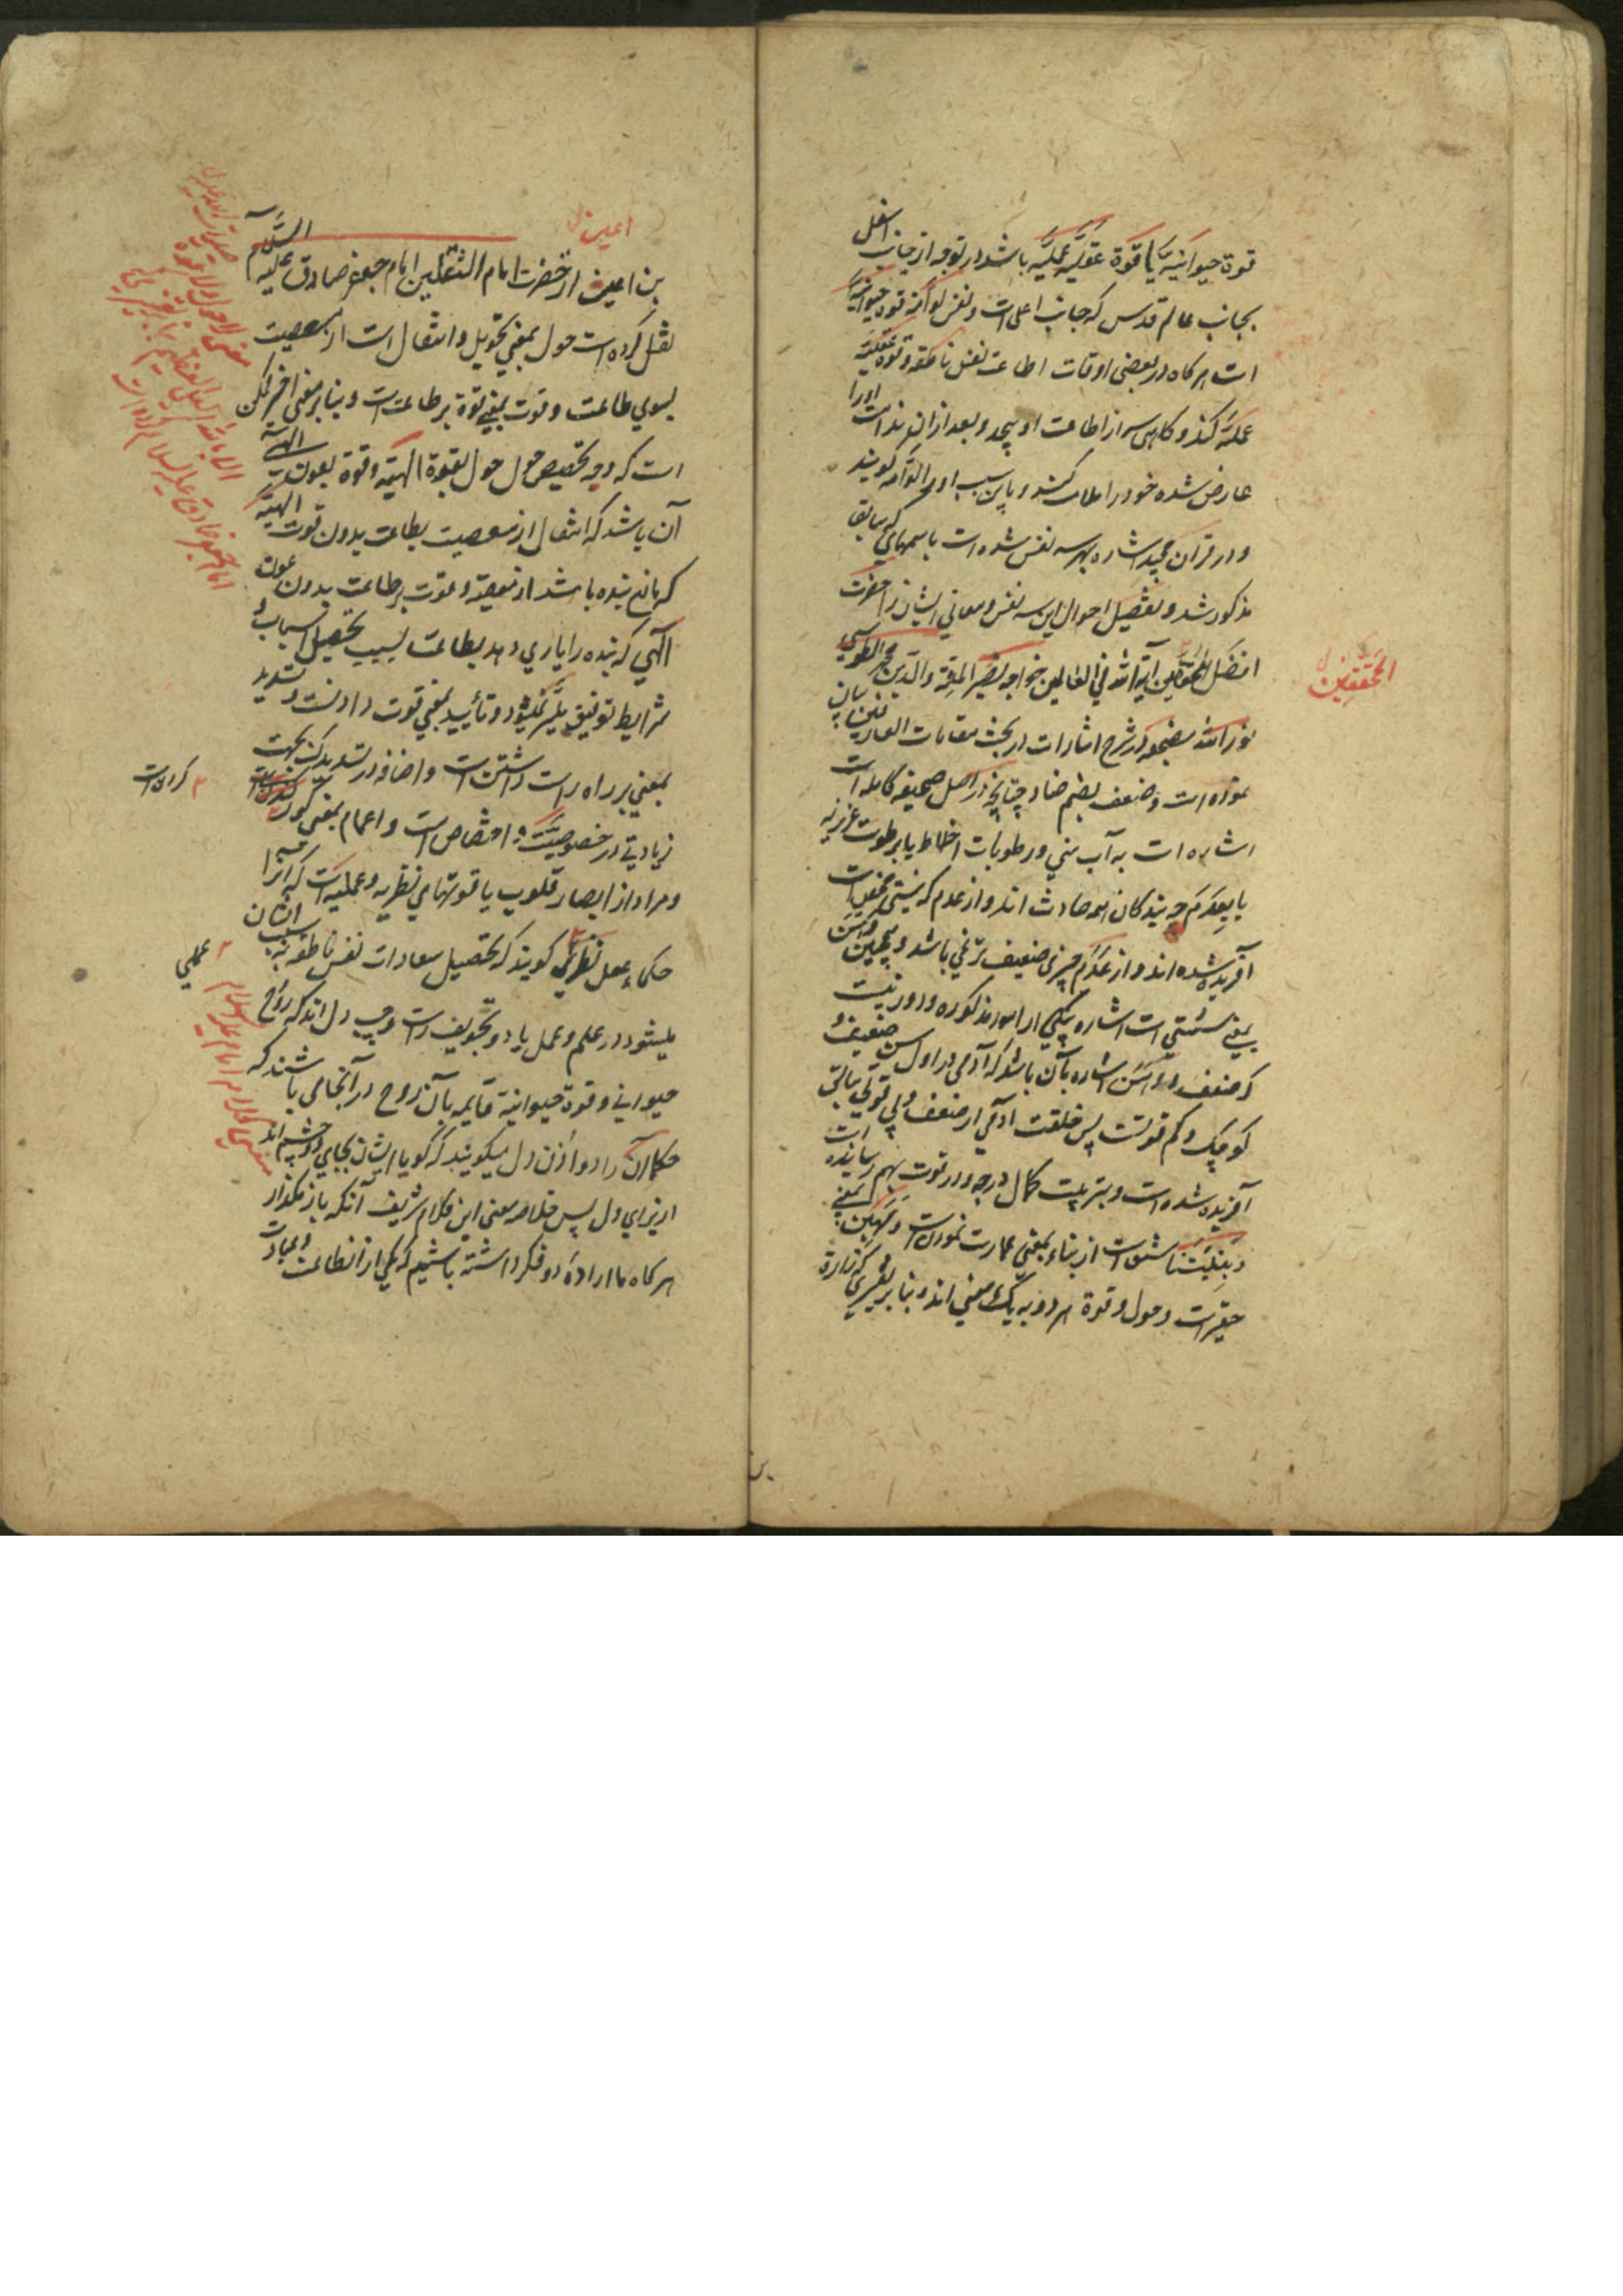 قوة حیوانیّه با قوة عقلیّه عملیّه باشد در توجه از جانب اسفل
بجانب عالم قدس که جانب اعلی است و نفس لوّامه قوة حیوانیّه
است هرکاه در بعضی اوقات اطاعت نفس ناطقه و قوة عقلیّه
عملیّه کند و کاهی سر از اطاعت او پیچد و بعد از آن ندامت او را
عارض شده خود را ملامت کند و باین سبب او را لوّامه کویند
و در قرآن مجید اشاره بهر سه نفس شده است باسمهای که سابقا
مذکور شد و تفصیل احوال این سه نفس و معانی ایشان را حضرت
افضل المحققین آیة الله فی العالمین خواجه نصیر الملّة والدّین محمد الطوسی
نور الله مضجعه در شرح اشارات در بحث مقامات العارفین بیان
نموده است و ضعف بضم ضاد چنانچه در اصل صحیفه کامله است
اشاره است به آب منی و رطوبات اخلاط یا برطوبت غریزیه
یا بِعَدَم چه بندکان همه حادث اند و از عدم که نیستی محض است
آفریده شده اند و از عَدَم چیزی ضعیف تر نمی باشد و همچنین وَهن
بمعنی سستی است اشاره بیکی از امور مذکوره و دور نیست
که ضعف و وَهن اشاره بآن باشد که آدمی در اول سن ضعیف و
کوچک و کم قوتست پس خلقت آدمی از ضعف ولی قوتی
آفریده شده است و بتربیت کمال درجه و در قوت بهم رسانیده است
وَ بَنَیتَنا مشتق است از بناء بمعنی عمارت نمودن است و مَهین بمعنی
حقیر است و حول و قوة هر دو به یک معنی اند و بنا بر تفسیری که زرارة
المحققین
اعین
بن اعین از حضرت امام الثقلین امام جعفر صادق علیه السّلام
نقل کرده است حول بمعنی تحویل و انتقال است از معصیت
بسوی طاعت و قوت بمعنی قوة بر طاعت است و بنا بر معنی اخیر ممکن
است که وجه تخصیص حول بقوة الهیّه و قوة بعون الهی
آن باشد که انتقال از معصیت بطاعت بدون قوت الهیّه
که مانع بنده باشد از معصیة و قوت بر طاعت بدون عون
الهی که بنده را یاری دهد بطاعت بسبب تحصیل اسباب و
شرایط توفیق میسّر نمیشود و تأیید بمعنی قوت دادنست و تسدید
بمعنی بر راه راست داشتن است و اضافه در بجهت
زیادتی در خصوصیّت و اختصاص است و اعمام بمعنی کور
و مراد از ابصار قلوب یا قوتهای نظریه و عملیه است که آنرا
حکماء عقل نظری کویند که تحصیل سعادات نفس ناطقه بسبب ایشان
میشود در علم و عمل یا دو تجویف راست و چپ دل اند که روح
حیوانی و قوة حیوانیة قایمه بآن روح در آنجا می باشند که
حکما آن را دو اذن دل میکویند که کویا ایشان بجای دو چشم اند
از برای دل پس خلاصه معنی این کلام شریف آنکه باز مکذار
هرکاه ما اراده دو فکر داشته باشیم که یکی از آنها طاعت و عبادت
کرده است
عملی